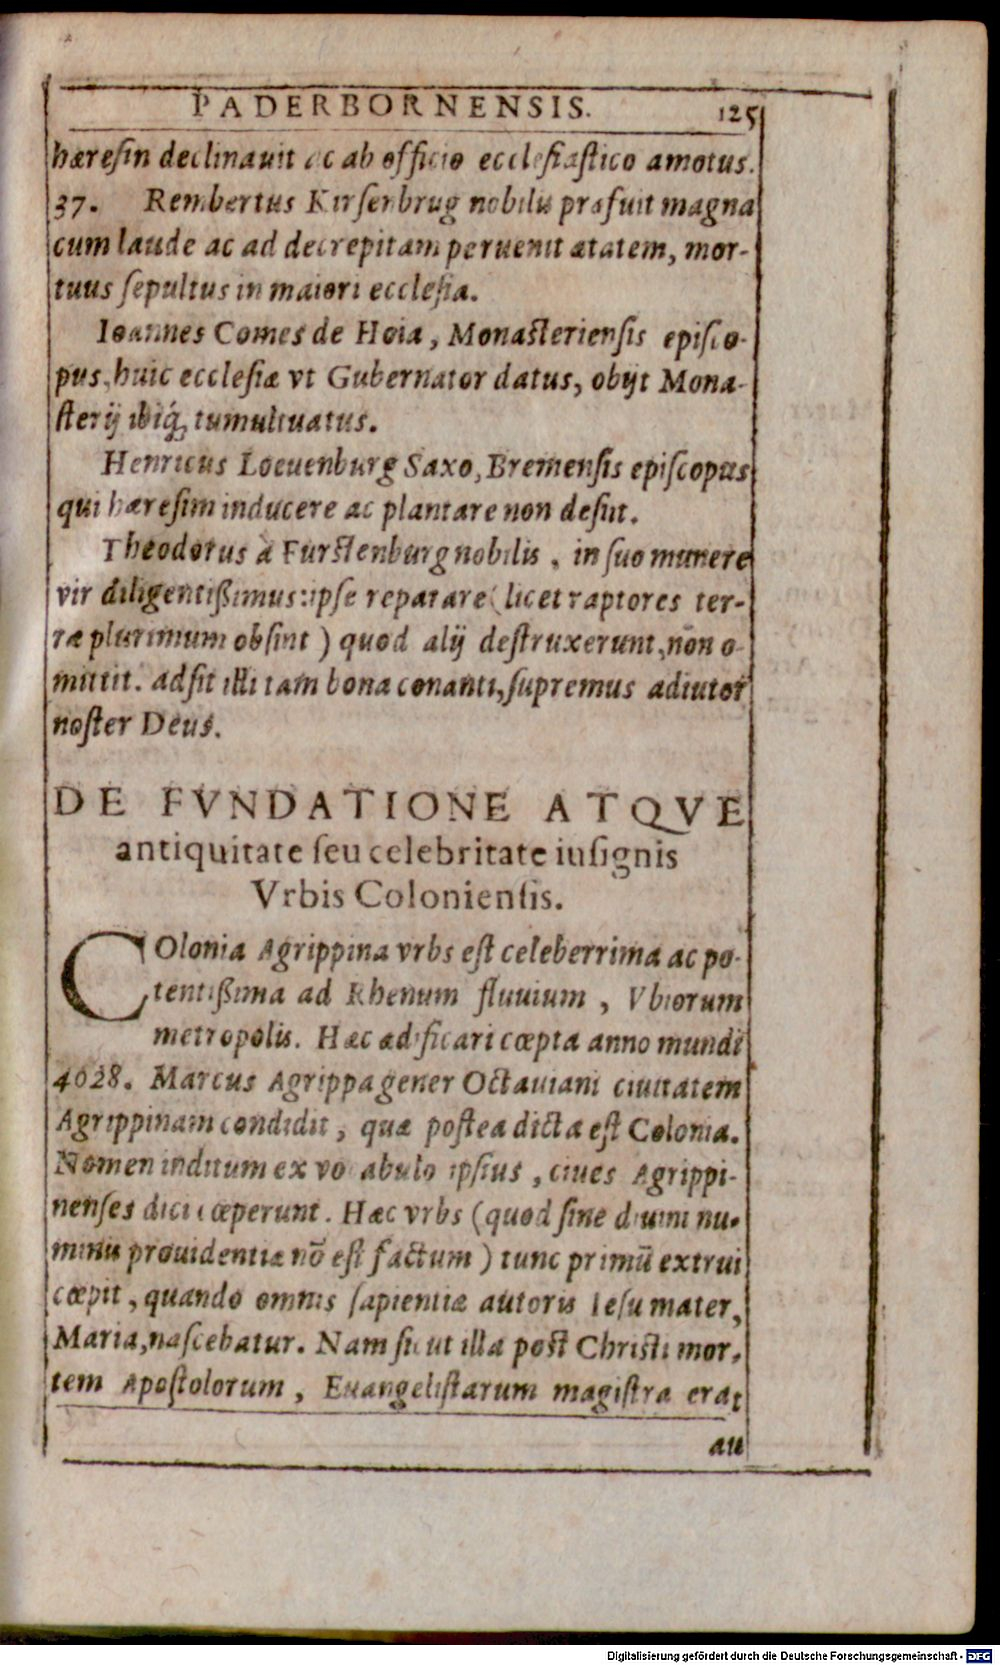 PADERBORNENSIS. 125
hæresin declinauit ac ab officio ecclesiastico amotus.
37. Rembertus Kirsenbrug nobilis præfuit magna
cum laude ac ad decrepitam peruenit ætatem, mor-
tuus sepultus in maiori ecclesia.
Ioannes Comes de Hoia, Monasteriensis episco-
pus, huic ecclesiæ vt Gubernator datus, obijt Mona-
sterij ibiq́; tumultuatus.
Henricus Loeuenburg Saxo, Bremensis episcopus
qui hæresim inducere ac plantare non desiit.
Theodorus à Furstenburg nobilis, in suo munere
vir diligentißimus: ipse reparare (licet raptores ter-
ræ plurimum obsint) quod alij destruxerunt, non o-
mittit. adsit illi tam bona conanti, supremus adiutor
noster Deus.
DE FVNDATIONE ATQVE
antiquitate seu celebritate insignis
Vrbis Coloniensis.
COlonia Agrippina vrbs est celeberrima ac po-
tentißima ad Rhenum fluuium, Vbiorum
metropolis. Hæc ædificari cœpta anno mundi
4028. Marcus Agrippa gener Octauiani ciuitatem
Agrippinam condidit, quæ postea dicta est Colonia.
Nomen inditum ex vocabulo ipsius, ciues Agrippi-
nenses dici cœperunt. Hæc vrbs (quod sine diuini nu-
minis prouidentia nō est factum) tunc primū extrui
cœpit, quando omnis sapientiæ autoris Iesu mater,
Maria, nascebatur. Nam sicut illa post Christi mor-
tem Apostolorum, Euangelistarum magistra erat
au
Digitalisierung gefördert durch die Deutsche Forschungsgemeinschaft - DFG